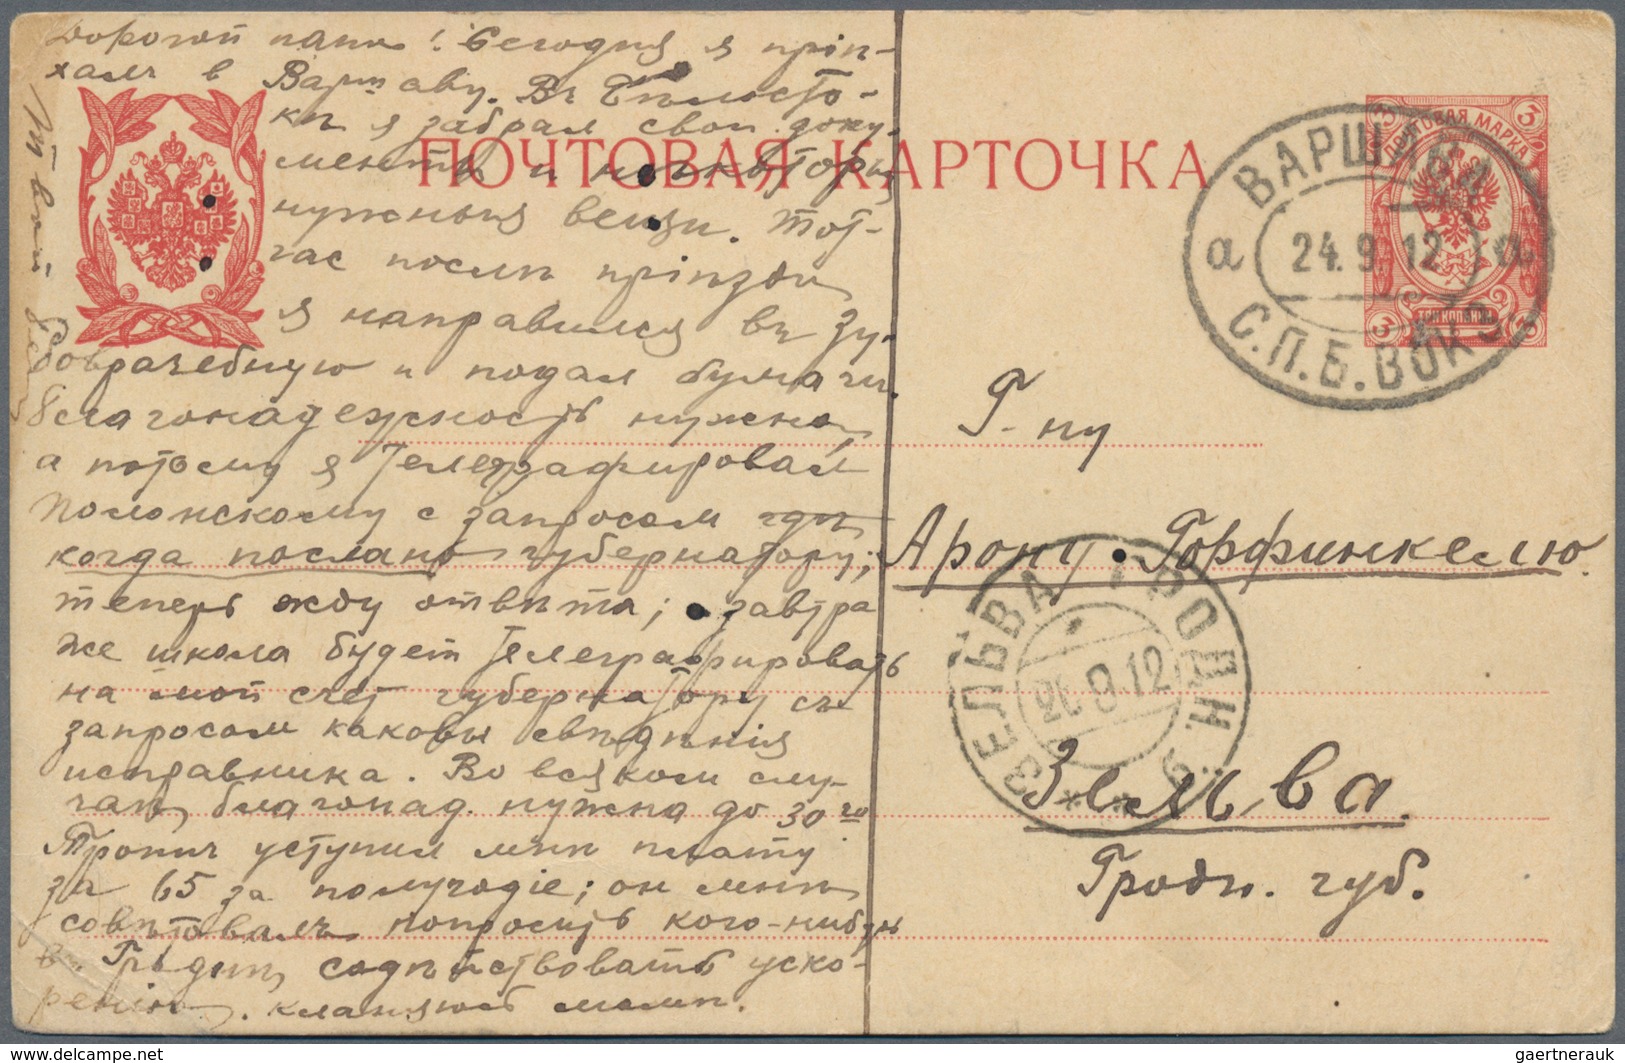 Дорогой папа! Сегодня я пріѣ-
халъ в Варшаву. Въ Бѣлосто-
кѣ я забрал свои доку-
менты и нѣкоторыя
нужныя вещи. Тот-
час послѣ пріѣзда
я направился въ зу-
боврачебную и подал бумаги.
благонадежность нужна,
а потому я телеграфировал
Полонскому с запросом гдѣ
когда послано губернатору;
теперь жду отвѣта; завтра
же школа будет телеграфировать
на мой счет губернатору съ
запросом каковы свѣдѣнія
исправника. Во всяком слу-
чаѣ, благонад. нужна до 30го
уступил мнѣ плату
за 65 за полугодіе; он мнѣ
совѣтовалъ попросить кого-нибудь
в содѣйствовать уско-
ренію. кланяюсь мамѣ.
Твой
ПОЧТОВАЯ КАРТОЧКА
3 3
ПОЧТОВАЯ МАРКА
ТРИ КОПѢЙКИ
3 3
ВАРШАВА
а 24.9.12 а
С.П.Б. ВОКЗ.
Г-ну
Арону Горфинкелю
ЗЕЛЬВА ГРОДН. Г.
26.9.12
Зельва.
Гродн. губ.
gaertnerauk
www.delcampe.net